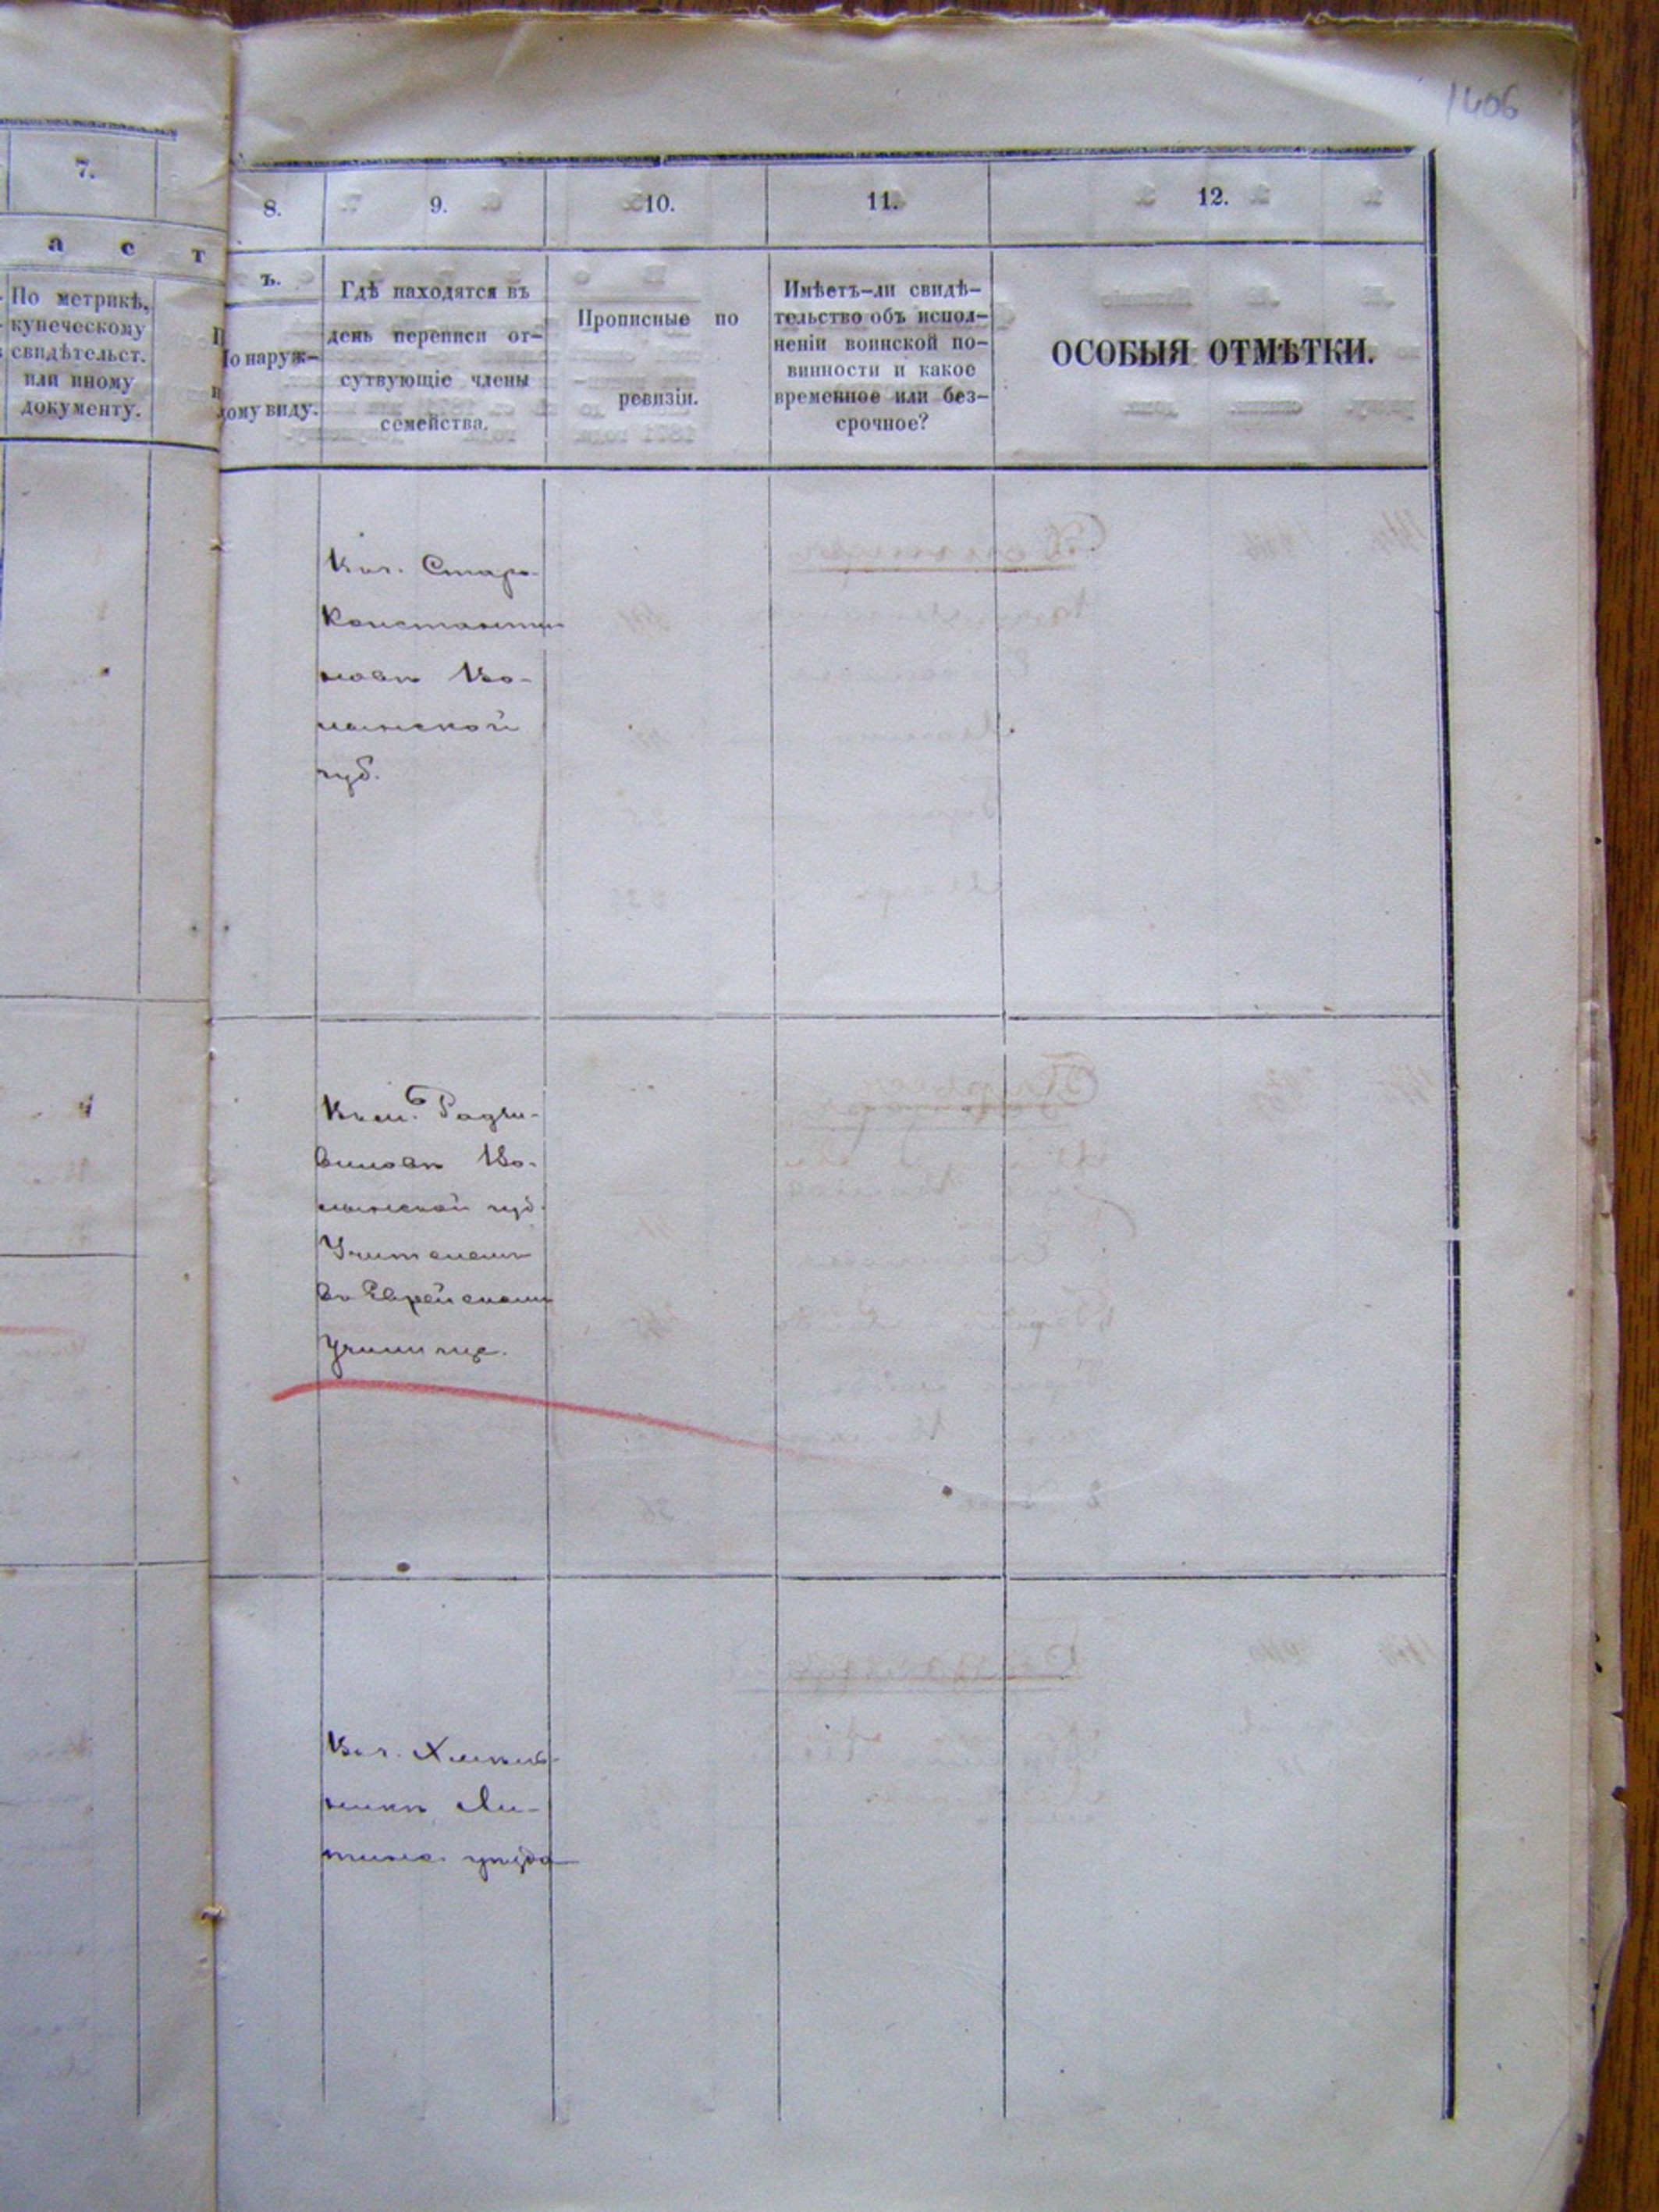 1406
7.
а с т
По метрикѣ,
купеческому
свидѣтельст.
или иному
документу.
8.
ъ.
По наруж-
ному виду.
9.
Гдѣ находятся въ
день переписи от-
сутвующіе члены
семейства.
10.
Прописные по
ревизіи.
11.
Имѣетъ-ли свидѣ-
тельство объ испол-
неніи воинской по-
винности и какое
временное или без-
срочное?
12.
ОСОБЫЯ ОТМѢТКИ.
Старо
Константи
новѣ Во-
лынской
губ.
Радзи-
виловѣ Во-
лынской губ.
Учителемъ
въ Еврейскомъ
Училище.
Хмель-
никѣ Ли-
тинс. уѣзда